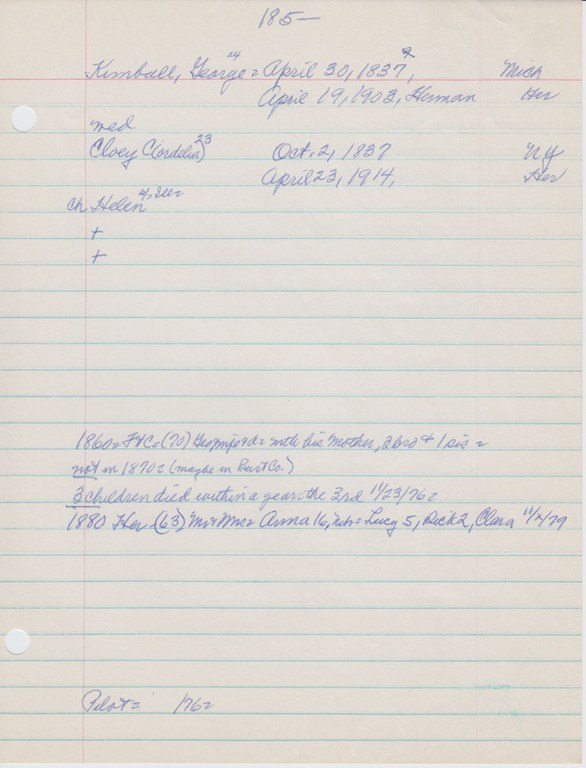 185—
24
Kimball, George = April 30, 1837, Mich
April 19, 1903, Herman Her
med
Cloey C(ordelia) 23 Oct. 2, 1837 NY
April 23, 1914, Her
ch Helen
+
+
1860 = (70) = with his Mother, 2 bro + 1 sis =
not in 1870 = (maybe in Co.)
3 children died within a year = the 3rd 11/23/76 =
1880 Her (63) Mr + Mrs = Anna 16, = Lucy 5, Dick 2, Clara 11/X/79
Pilot = 176 =